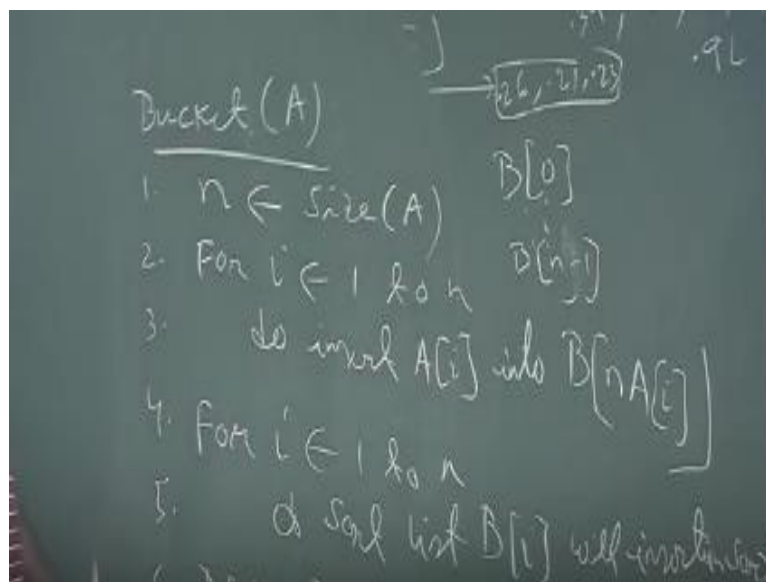 .91
.26, .21, .23
Bucket (A)
1. n ← Size(A)
B[0]
2. For i ← 1 to n
B[n-1]
3. do insert A[i] into B[nA[i]]
4. For i ← 1 to n
5. do Sort list B[i] with insertion